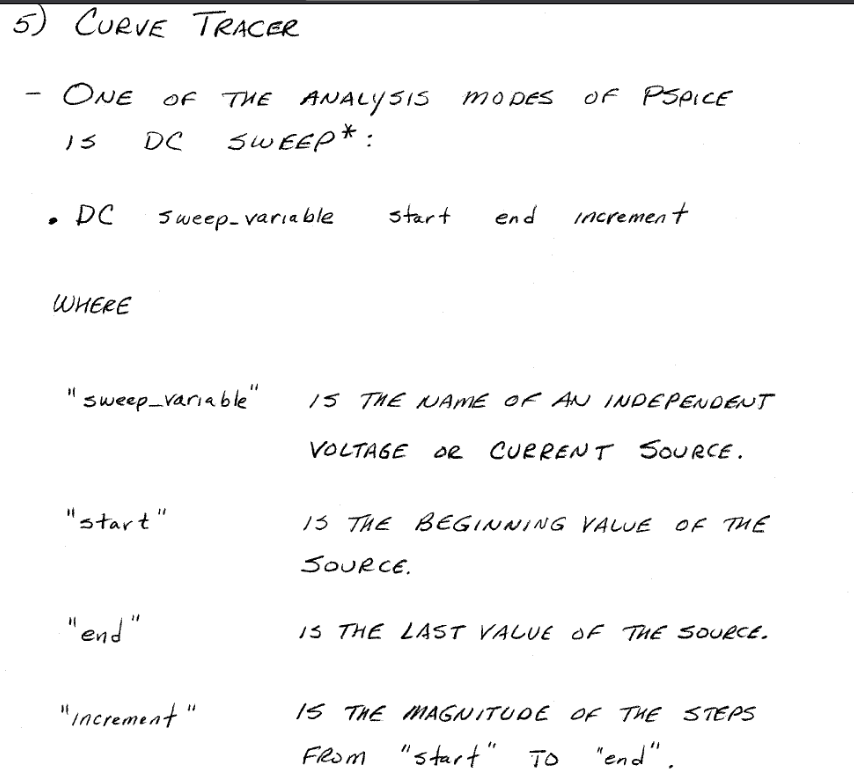 5) CURVE TRACER
- ONE OF THE ANALYSIS MODES OF PSPICE
IS DC SWEEP*:
. DC sweep_variable start end increment
WHERE
"sweep_variable" IS THE NAME OF AN INDEPENDENT
VOLTAGE OR CURRENT SOURCE.
"start" IS THE BEGINNING VALUE OF THE
SOURCE.
"end" IS THE LAST VALUE OF THE SOURCE.
"increment" IS THE MAGNITUDE OF THE STEPS
FROM "start" TO "end".